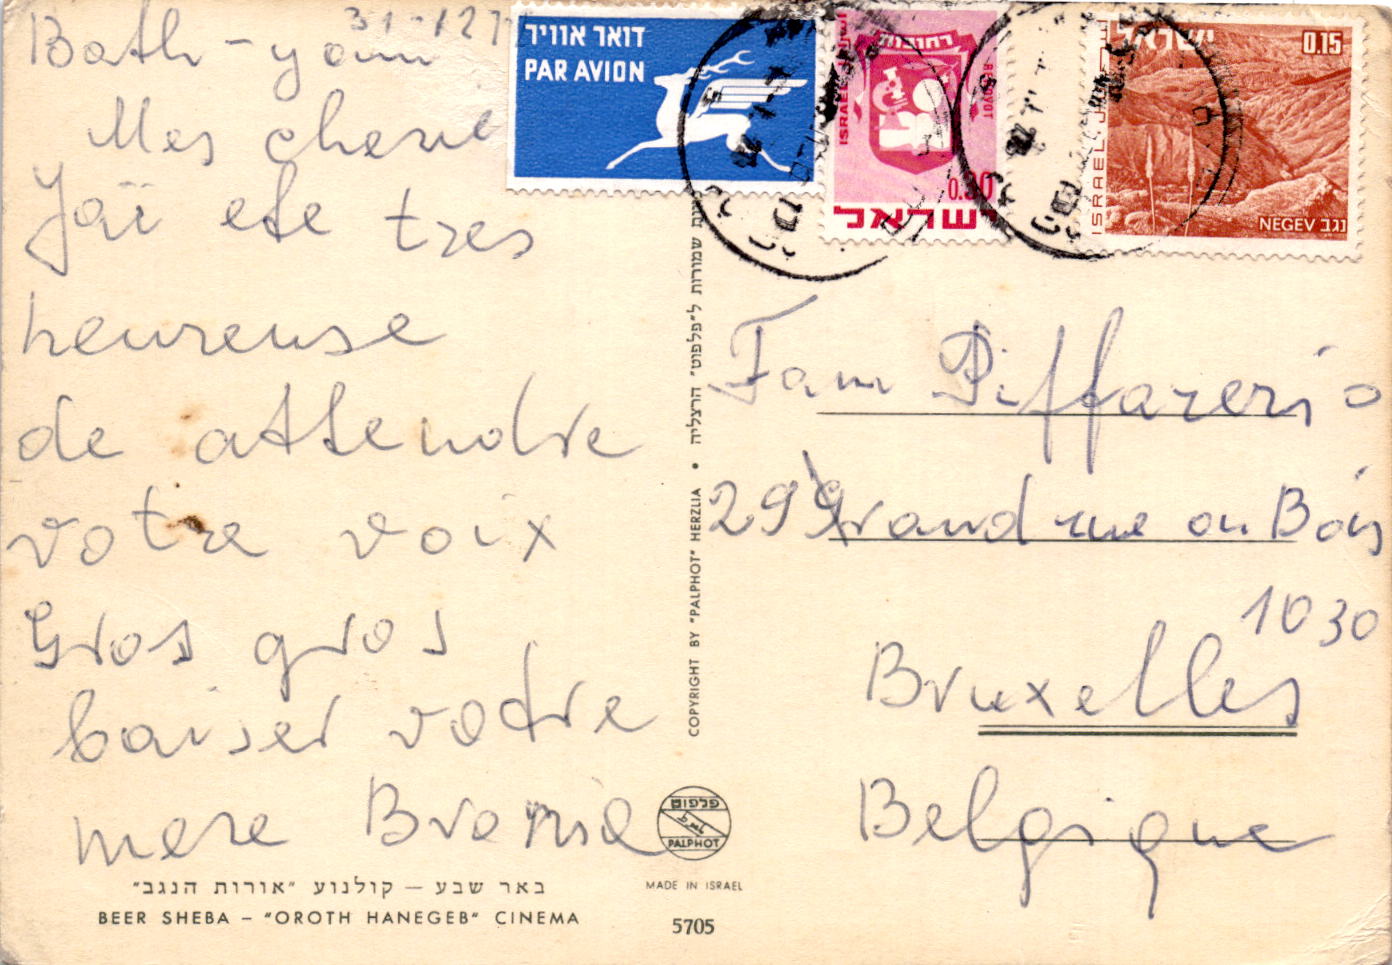 Bath-yam 31-12 7
Mes cherie
J'aï ete tres
heureuse
de attendre
votre voix
Gros gros
baiser votre
mere Bronia
באר שבע – קולנוע "אורות הנגב"
BEER SHEBA – "OROTH HANEGEB" CINEMA
שמורות ל"פלפוט" הרצליה • COPYRIGHT BY "PALPHOT" HERZLIA
פלפוט
PALPHOT
MADE IN ISRAEL
5705
דואר אוויר
PAR AVION
רחובות
REḤOVOT
ISRAEL
0.80
ישראל
ישראל
0.15
ISRAEL
NEGEV נגב
Fam Piffarerio
299 Grand rue au Bois
1030
Bruxelles
Belgique